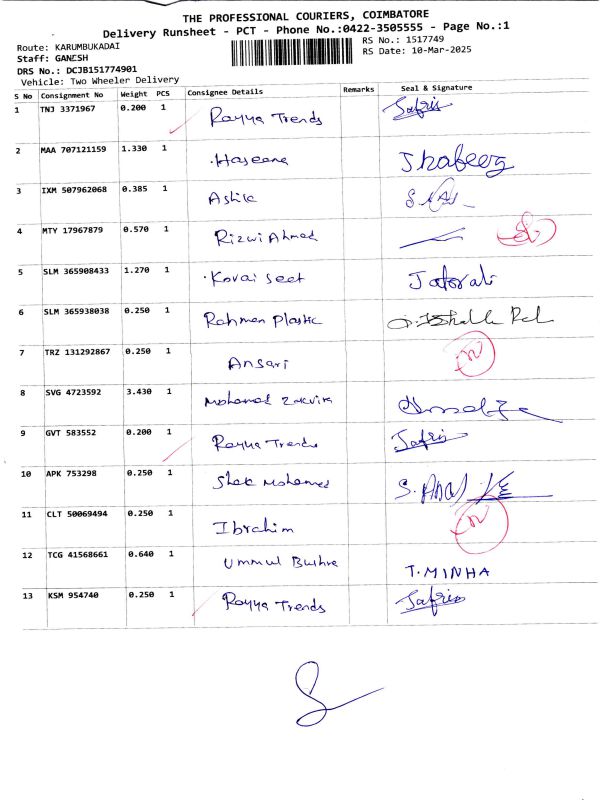 THE PROFESSIONAL COURIERS, COIMBATORE
Delivery Runsheet - PCT - Phone No.:0422-3505555 - Page No.:1
Route: KARUMBUKADAI
RS No.: 1517749
Staff: GANESH
RS Date: 10-Mar-2025
DRS No.: DCJB151774901
Vehicle: Two Wheeler Delivery
S No Consignment No Weight PCS Consignee Details Remarks Seal & Signature
1 TNJ 3371967 0.200 1 Rayya Trends Safrin
2 MAA 707121159 1.330 1 Haseena
3 IXM 507962068 0.385 1
4 MTY 17967879 0.570 1 Rizwi Ahmed
5 SLM 365908433 1.270 1 Kovai Seet
6 SLM 365938038 0.250 1 Rahman Plastic
7 TRZ 131292867 0.250 1 Ansari
8 SVG 4723592 3.430 1 Mohamed
9 GVT 583552 0.200 1 Rayya Trends Safrin
10 APK 753298 0.250 1 Mohamed
11 CLT 50069494 0.250 1 Ibrahim
12 TCG 41568661 0.640 1 Ummul Bushra T.MINHA
13 KSM 954740 0.250 1 Rayya Trends Safrin